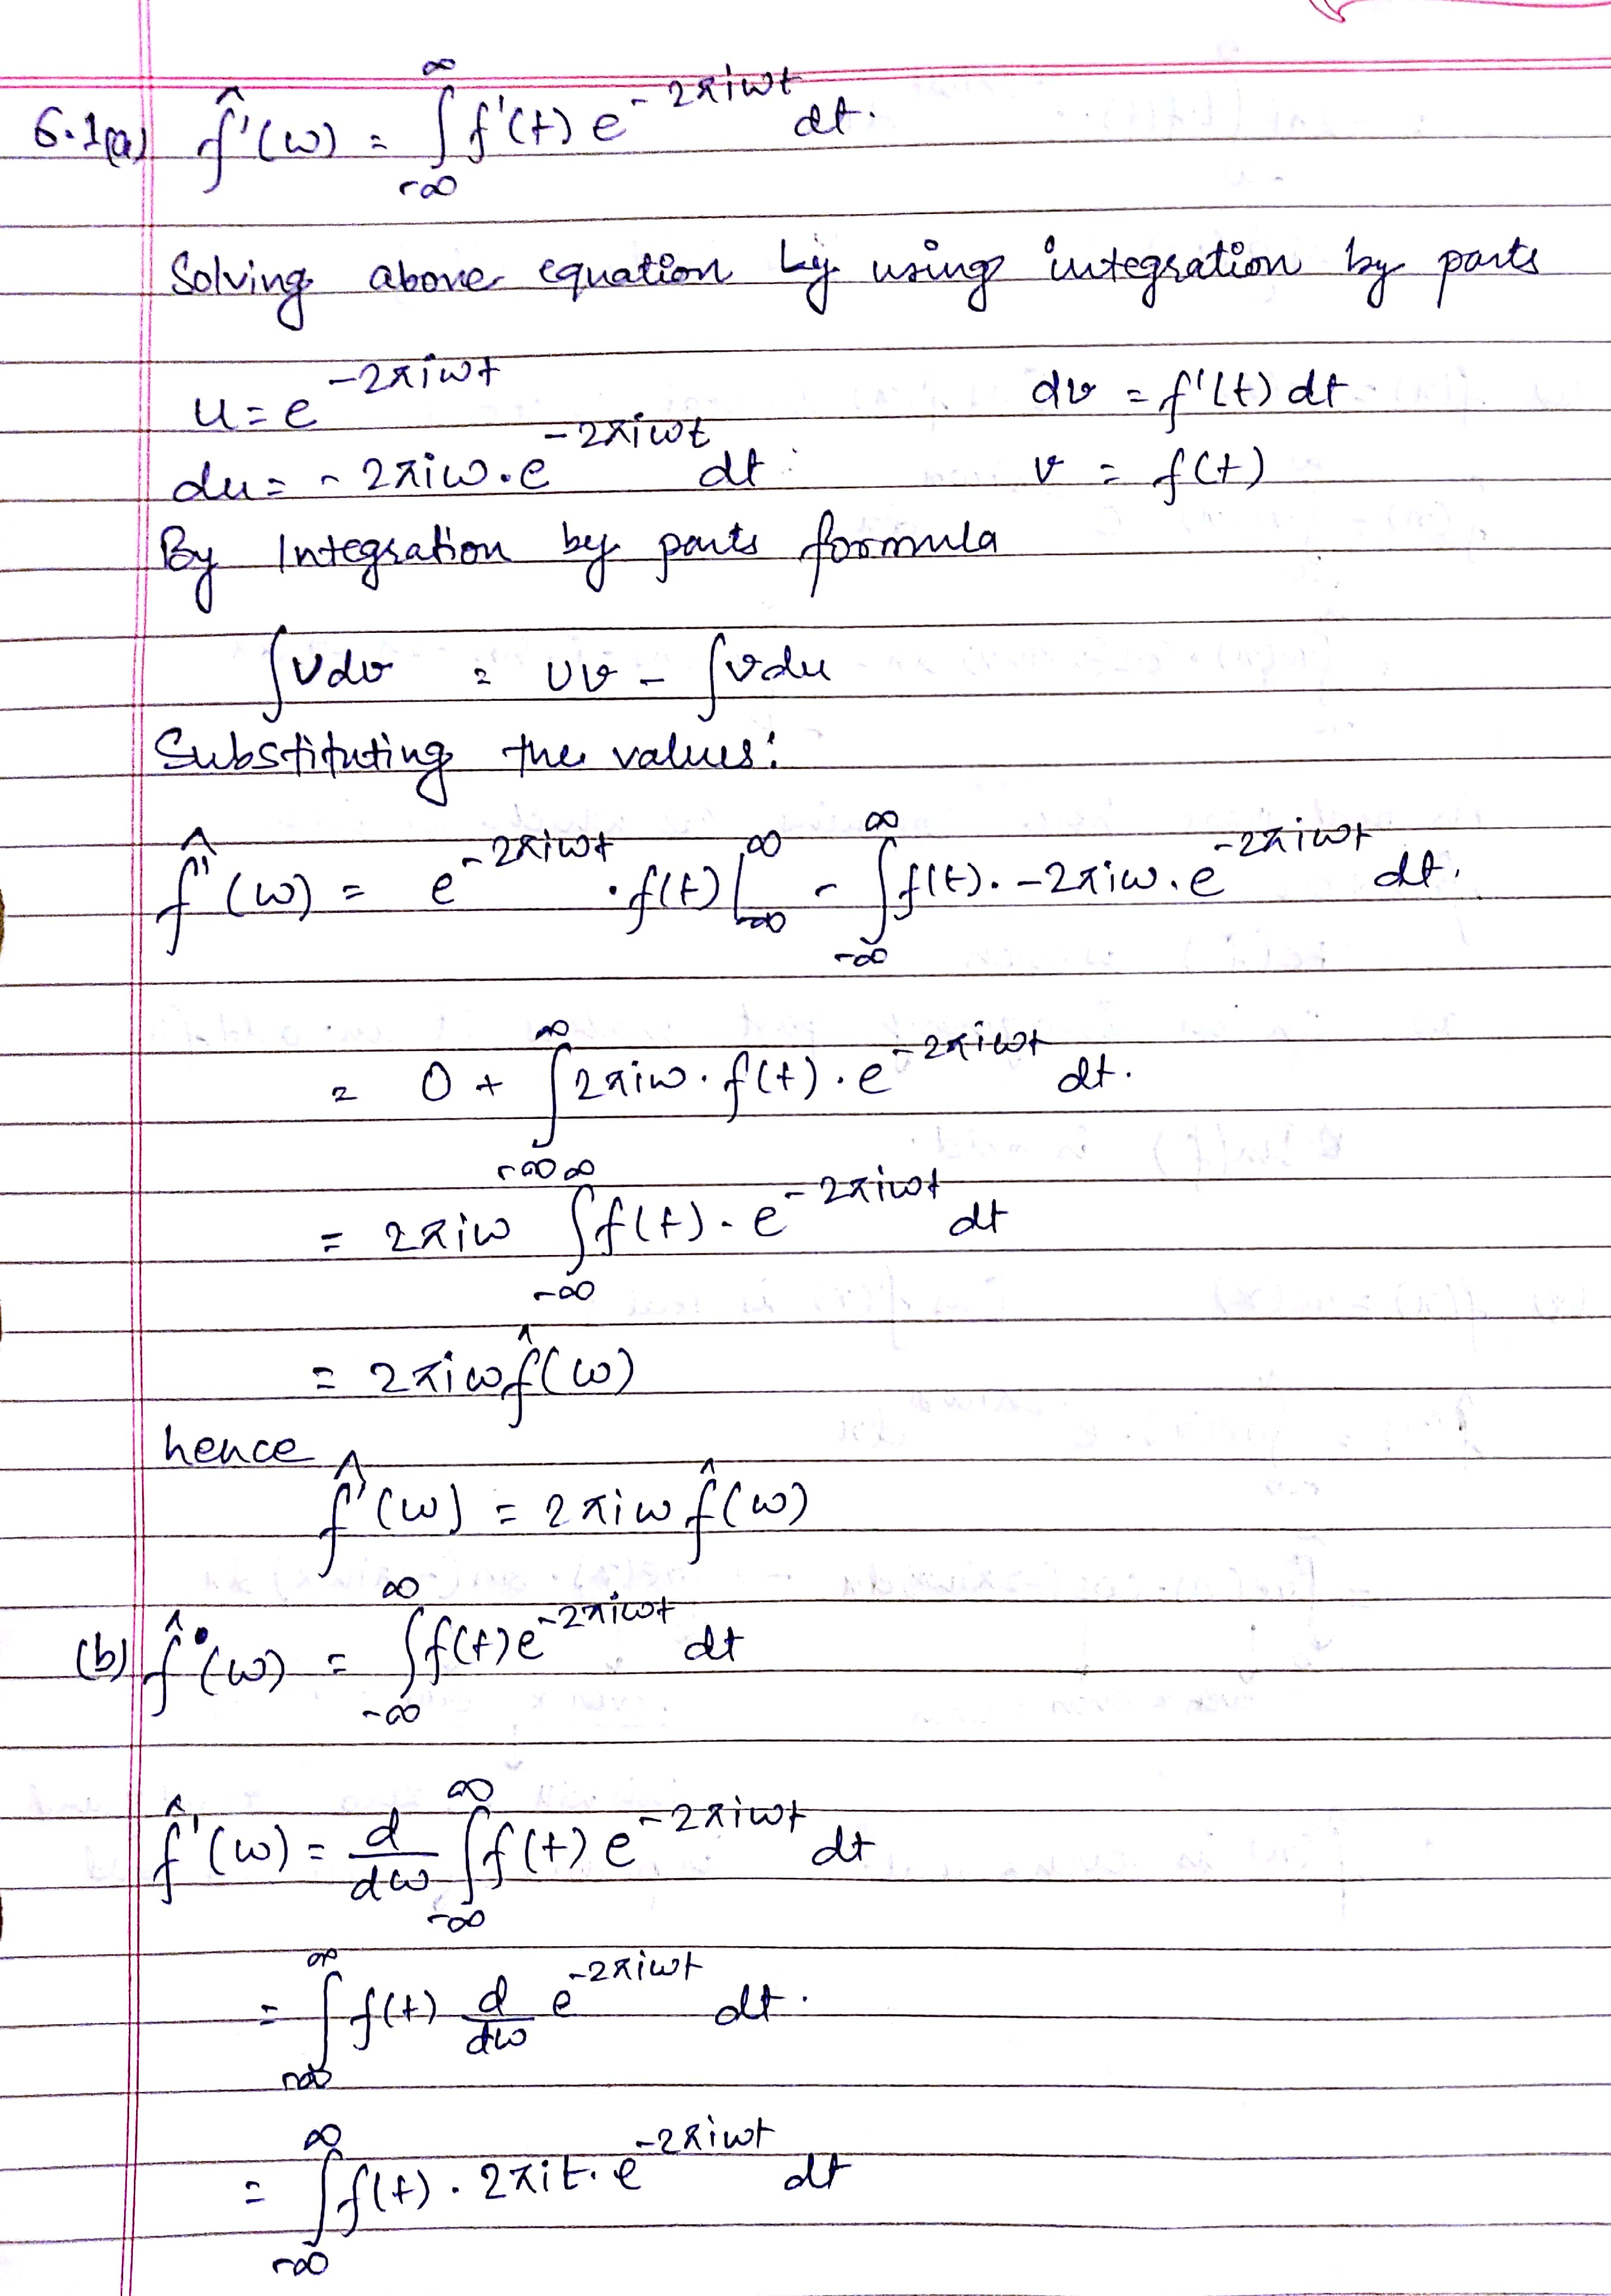 6.1(a) f̂'(ω) = ∫_{-∞}^{∞} f'(t) e^{-2πiωt} dt.
Solving above equation by using integration by parts
u = e^{-2πiωt}    dv = f'(t) dt
du = -2πiω.e^{-2πiωt} dt    v = f(t)
By Integration by parts formula
∫Udv = Uv - ∫vdu
Substituting the values:
f̂'(ω) = e^{-2πiωt} .f(t)|_{-∞}^{∞} - ∫_{-∞}^{∞} f(t). -2πiω.e^{-2πiωt} dt.
= 0 + ∫_{-∞}^{∞} 2πiω.f(t).e^{-2πiωt} dt.
= 2πiω ∫_{-∞}^{∞} f(t).e^{-2πiωt} dt
= 2πiωf̂(ω)
hence
f̂'(ω) = 2πiωf̂(ω)
(b) f̂(ω) = ∫_{-∞}^{∞} f(t)e^{-2πiωt} dt
f̂'(ω) = d/dω ∫_{-∞}^{∞} f(t) e^{-2πiωt} dt
= ∫_{-∞}^{∞} f(t) d/dω e^{-2πiωt} dt.
= ∫_{-∞}^{∞} f(t).2πit.e^{-2πiωt} dt